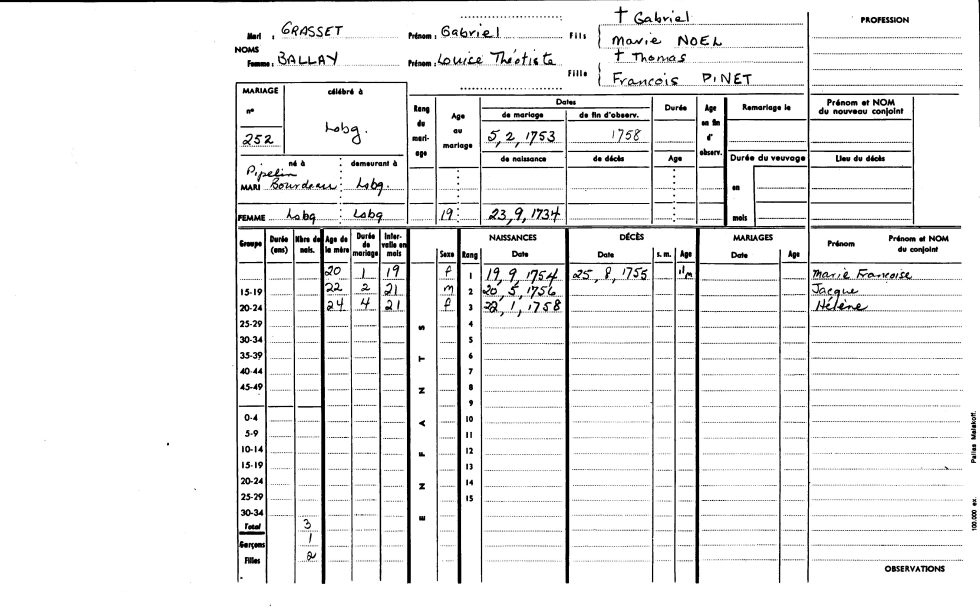 Mari : GRASSET Prénom : Gabriel Fils † Gabriel PROFESSION
Marie NOEL
NOMS
Femme : BALLAY Prénom : Louise Théotiste Fille † Thomas
François PINET
MARIAGE célébré à Rang du mariage Age au mariage Dates Durée Age en fin d'observ. Remariage le Prénom et NOM du nouveau conjoint
n° de mariage de fin d'observ.
252 Lobg. 5, 2, 1753 1758
né à demeurant à de naissance de décès Age Durée du veuvage Lieu du décès
Pipelin
MARI Bourdeau Lobg. en
FEMME Lobg Lobg 19 23, 9, 1734 mois
Groupe Durée (ans) Nbre de nais. Age de la mère Durée de mariage Intervalle en mois ENFANTS Sexe Rang NAISSANCES Date DÉCÈS Date s. m. Age MARIAGES Date Age Prénom Prénom et NOM du conjoint
20 1 19 f 1 19, 9, 1754 25, 8, 1755 11m Marie Françoise
15-19 22 2 21 m 2 20, 5, 1756 Jacque
20-24 24 4 21 f 3 22, 1, 1758 Hélène
25-29 4
30-34 5
35-39 6
40-44 7
45-49 8
9
0-4 10
5-9 11
10-14 12
15-19 13
20-24 14
25-29 15
30-34
Total 3
Garçons 1
Filles 2
OBSERVATIONS
100.000 ex. Pallas Malakoff.